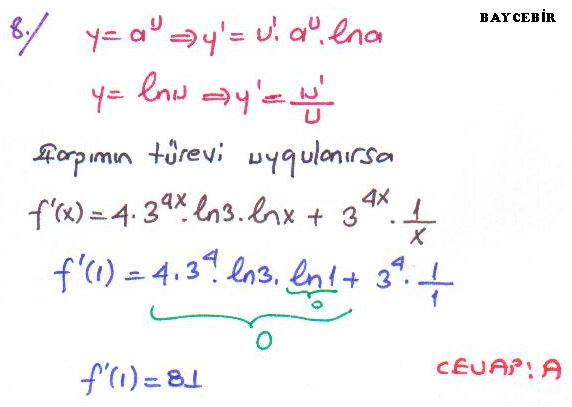 BAYCEBİR
8./ y = a^u ⇒ y' = u'. a^u. lna
y = lnu ⇒ y' = u'/u
Çarpımın türevi uygulanırsa
f'(x) = 4.3^4x. ln3. lnx + 3^4x. 1/x
f'(1) = 4.3^4. ln3. ln1 + 3^4. 1/1
0
0
f'(1) = 81
CEVAP: A